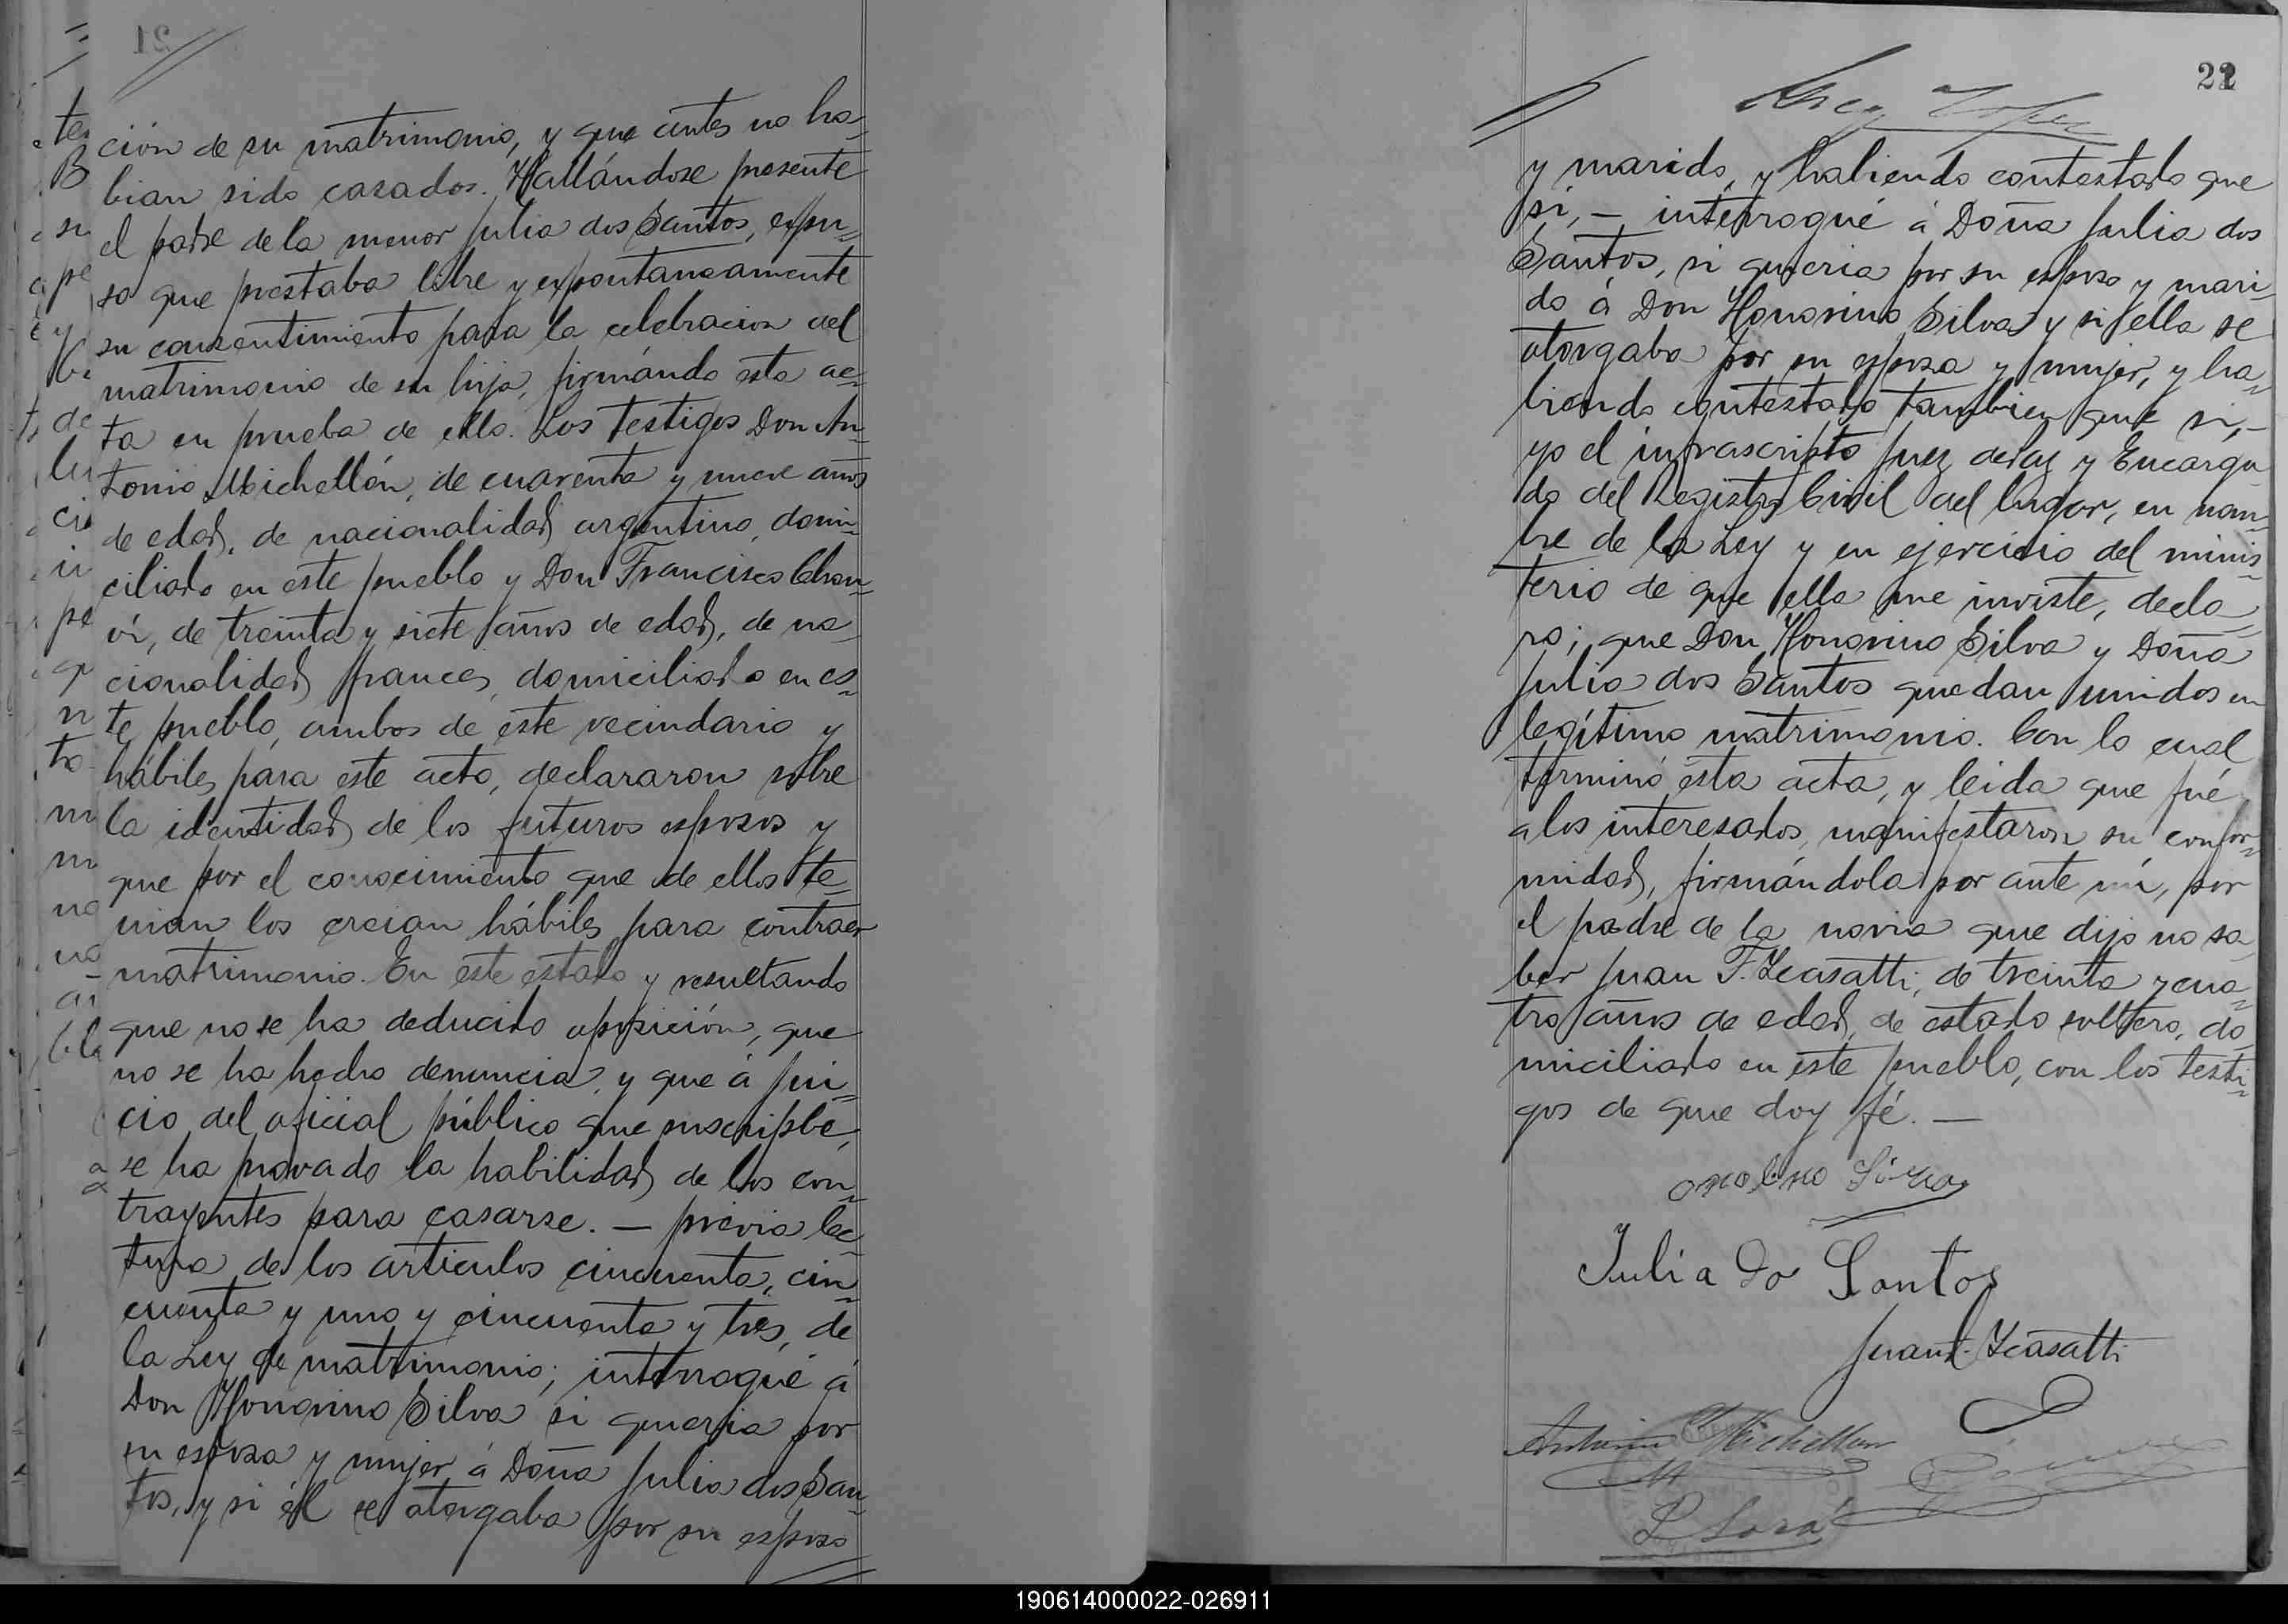 ción de su matrimonio, y que antes no ha-
bian sido casados. Hallándose presente
el padre de la menor Julia dos Santos, expu-
so que prestaba libre y expontaneamente
su consentimiento para la celebracion del
matrimonio de su hija, firmándo esta ac-
ta en prueba de ello. Los testigos Don An-
tonio Michellón, de cuarenta y nueve años
de edad, de nacionalidad argentino, domi-
ciliado en este pueblo y Don Francisco
de treinta y siete años de edad, de na-
cionalidad frances, domiciliado en es-
te pueblo, ambos de este vecindario y
hábiles para este acto, declararon sobre
la identidad de los futuros esposos y
que por el conocimiento que de ellos te-
nian los creian hábiles para contraer
matrimonio. En este estado y resultando
que no se ha deducido oposición, que
no se ha hecho denuncia, y que á jui-
cio del oficial público que suscripbe,
se ha provado la habilidad de los con-
trayentes para casarse. — previa lec-
tura de los articulos cincuenta, cin-
cuenta y uno y cincuenta y tres, de
la Ley de matrimonio; interrogué á
Don Honorino Silva si queria por
su esposa y mujer á Doña Julia dos San-
tos, y si él se otorgaba por su esposo
22
y marido, y habiendo contestado que
si, — interrogué á Doña Julia dos
Santos, si queria por su esposo y mari-
do á Don Honorino Silva y si ella se
otorgaba por su esposa y mujer, y ha-
biendo contestado tambien que si, —
yo el infrascripto Juez de Paz y Encarga-
do del Registro Civil del lugar, en nom-
bre de la Ley y en ejercicio del minis-
terio de que ella me inviste, decla-
ro; que Don Honorino Silva y Doña
Julia dos Santos quedan unidos en
legítimo matrimonio. Con lo cual
terminó esta acta, y leida que fué
a los interesados, manifestaron su confor-
midad, firmándola por ante mí, por
el padre de la novia que dijo no sa-
ber Juan F. Zcasatti, de treinta y cua-
tro años de edad, de estado soltero, do-
miciliado en este pueblo, con los testi-
gos de que doy fé. —
Julia do Santos
Juan F. Zcasatti
Antonio Michellon
190614000022-026911